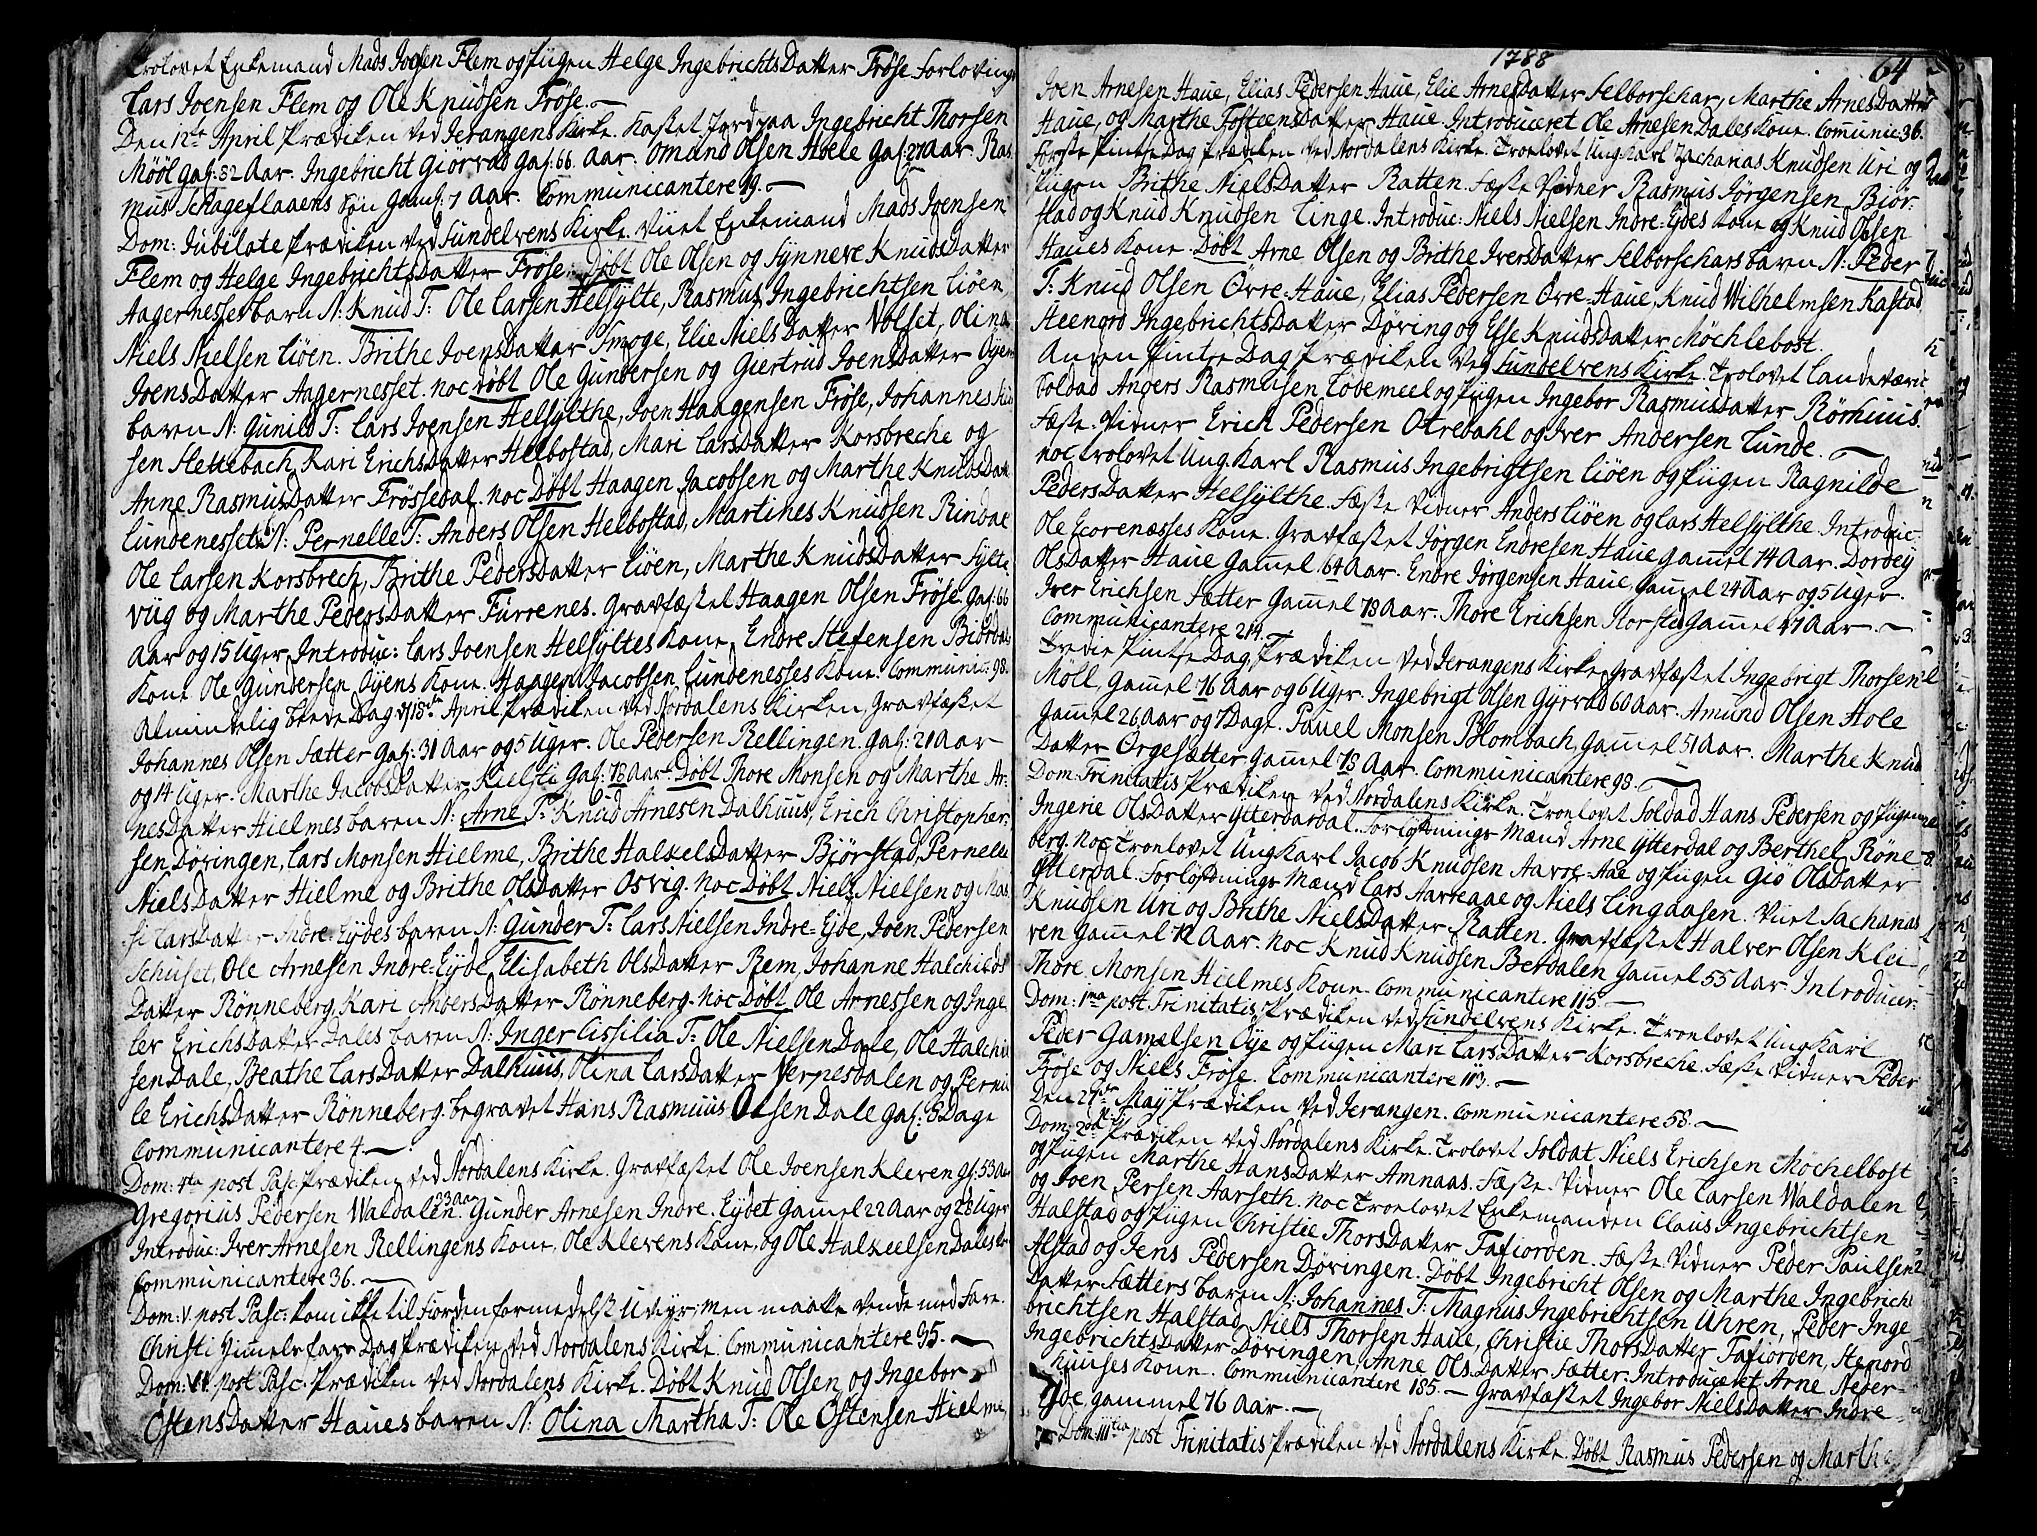 Trolovet Enkemand Mads Joensen Flem og Pigen Helge IngebrichtsDatter Fröse Forlovings
Lars Joensen Flem og Ole Knudsen Fröse.
Den 12te April Prædiken ved Jerangens Kirke. Kastet Jord paa Ingebricht Thorsen
Mööl gaſ: 82 Aar. Ingebricht Giörvad gaſ: 66 Aar. Omund Olsen Hoele gaſ: 27 Aar Ras
mus Schageflaaens Sön gamſ. 7 Aar. Communicantere 99.
Dom: Jubilate Prædiken ved Sundelvens Kirke. Viiet Enkemand Mads Joensen
Flem og Helge IngebrichtsDatter Fröse. Döbt Ole Olsen og Synneve KnudsDatter
Aagernesses barn N: Knud T: Ole Larsen Helsylte, Rasmus Ingebrichtsen Liöen,
Niels Nielsen Liöen. Brithe JoensDatter Smoge, Elie NielsDatter Volset, Olina
JoensDatter Aagernesset. noc döbt Ole Gundersen og Giertrud JoensDatter Öyens
baren N: Gunild T: Lars Joensen Helsylthe, Joen Haagensen Fröse, Johannes
sen Slettebach, Kari ErichsDatter Helbostad, Mari LarsDatter Korsbreche og
Anne RasmusDatter Frössedal. noc Döbt Haagen Jacobsen og Marthe KnudsDatt
Lundenessets N: Pernelle T: Anders Olsen Helbostad, Martines Knudsen Rindal
Ole Larsen Korsbrech, Brithe PedersDatter Liöen, Marthe KnudsDatter Sylte
viig og Marthe PedersDatter Furrenes. Gravfæstet Haagen Olsen Fröse gaſ: 66
Aar og 15 Uger. Introduc: Lars Joensen Helsyltes Kone, Endre Stefensen Biördals
Kone Ole Gundersen Öyens Kone. Haagen Jacobsen Lundenesses Kone. Communic: 98.
Almindelig Bede Dag d 18de April Prædiken ved Nordalens Kirken, Gravfæstet
Johannes Olsen Sætter gaſ: 31 Aar og 5 Uger. Ole Pedersen Rellingen. gaſ: 21 Aar
og 14 Uger. Marthe JacobsDatter Kielsti gaſ: 78 Aar. Döbt Thore Monsen og Marthe Ar
nesDatter Hielmes baren N: Arne T: Knud Arnesen Dalhuus, Erich Christopher
sen Dövingen, Lars Monsen Hielme, Brithe HalkelsDatter Biörstad, Pernelle
NielsDatter Hielme og Brithe OlsDatter Osvig. Noc Döbt Niels Nielsen og Mar
si LarsDatter Indre-Eydes baren N: Gunder T: Lars Nielsen Indre-Eyde, Joen Pedersen
Schuset, Ole Arnesen Indre-Eyde, Elisabeth OlsDatter Rem, Johanne Halchilds
Datter Rönneberg, Kari AndersDatter Rönneberg. Noc Döbt Ole Arnessen og Inge
ler ErichsDatter Dales baren N: Inger Cissilia T: Ole Nielsen Dale, Ole Halchil
sen Dale, Beathe LarsDatter Dalhuus, Olina LarsDatter Verpesdalen og Pernil
le ErichsDatter Rönneberg. begravet Hans Rasmuus Olsen Dale gaſ: 5 Dage
Communicantere 4.
Dom: 4ta post Pasc: Prædiken ved Nordalens Kirke. Gravfæstet Ole Joensen Kleven gſ: 53 Aar
Gregorius Pedersen Waldalen 23 Aar. Gunder Arnesen Indre Eydet gamel 22 Aar og 28 Uger
Introduc: Iver Arnesen Rellingens Kone, Ole Klevens Kone, og Ole Halkeelsen Dales Ko
Communicantere 36.
Dom: V. post Pasc: kom ikke til Fiorden formedelst Uveyr; men maatte vende med Fare.
Christi Himmelsfart Dag Prædiken ved Nordalens Kirke. Communicantere 95.
Dom: VI. post Pasc: Prædiken ved Nordalens Kirke. Döbt Knud Olsen og Ingebor
ÖstensDatter Haues baren N: Olina Martha T: Ole Östensen Hielme,
1788
64
Joen Arnesen Haue, Elias Pedersen Haue, Elie ArnesDatter Selborschar, Marthe ArnesDatter
Haue, og Marthe JosteensDatter Haue. Introduceret Ole Arnesen Dales Kone. Communic: 36.
Förste Pintse Dag Prædiken ved Nordalens Kirke. Troelovet Ung Karl Zacharias Knudsen Uri og
Pigen Brithe NielsDatter Ratten. Fæste Vidner Rasmus Jörgensen Biör-
stad og Knud Knudsen Linge. Introduc: Niels Nielsen Indre-Eydes Kone og Knud Olsen
Haues Kone. Döbt Arne Olsen og Brithe IversDatter Selborschars barn N: Peder
T: Knud Olsen Övre-Haue, Elias Pedersen Övre-Haue, Knud Wilhelmsen Kastad,
Steengro IngebrichtsDatter Döving og Else KnudsDatter Möchlebost.
Anden Pintse Dag Prædiken ved Sundelvens Kirke. Trolovet Landeværn
Soldad Anders Rasmusen Löbemeel og Pigen Ingebor RasmusDatter Rörhuus.
Fæste Vidner Erich Pedersen Otredahl og Iver Andersen Lunde.
noc trolovet Ung Karl Rasmus Ingebrigtsen Liöen og Pigen Ragnilde
PedersDatter Helsylthe. Fæste Vidner Anders Liöen og Lars Helsylthe. Introduc:
Ole Ecorenæsses Kone. Gravfæstet Jörgen Endresen Haue gamel 74 Aar. Dordey
OlsDatter Haue gamel 64 Aar. Endre Jörgensen Haue, gamel 24 Aar og 5 Uger.
Iver Erichsen Sætter gamel 78 Aar. Thore Erichsen Storsted gamel 47 Aar.
Communicantere 214.
Tredie Pintse Dag Prædiken ved Jerangens Kirke, Gravfæstet Ingebrigt Thorsen
Möll, gamel 76 Aar og 6 Uger. Ingebrigt Olsen Gyrvad 60 Aar. Amund Olsen Hole
gamel 26 Aar og 7 Dage. Pauel Monsen Blombach, gamel 51 Aar. Marthe Knud
Datter Orgesætter gamel 78 Aar. Communicantere 98.
Dom: Trinitatis Prædiken ved Nordalens Kirke. Troelovet Soldad Hans Pedersen og Pigen
Ingerie OlsDatter Ytterdardal. Forlovnings Mænd Arne Ytterdal og Berthel Röne
berg. Noc Troelovet Ung Karl Jacob Knudsen Aaroe-Aae og Pigen Giö OlsDatter
Ytterdal. Forlovnings Mænd Lars Aaroeaae og Niels Lingaasen. Viiet Sacharias
Knudsen Uri og Brithe NielsDatter Ratten. Gravfæstet Halver Olsen Kle
ven gamel 72 Aar. Noc Knud Knudsen Berdalen gamel 55 Aar. Introducer:
Thore Monsen Hielmes Kone. Communicantere 115.
Dom: 1ma post Trinitatis Prædiken ved Sundelvens Kirke. Troelovet Ung Karl
Peder Gamelsen Öye og Pigen Mari LarsDatter Korsbreche. Fæste Vidner Peder
Fröse og Niels Fröse. Communicantere 113.
Den 27de May Prædiken ved Jerangen. Communicantere 58.
Dom: 2da Prædiken ved Nordalens Kirke. Trolovet Soldat Niels Erichsen Möchelbost
og Pigen Marthe HansDatter Amnaas. Fæste Vidner Ole Larsen Waldalen
og Joen Persen Aarseth. Noc Troelovet Enkemanden Claus Ingebrichtsen
Halstad og Pigen Christie ThorsDatter Tafiorden. Fæste Vidner Peder Paulsen
Alstad og Jens Pedersen Dövingen. Döbt Ingebricht Olsen og Marthe Ingebrich
Datter Sætters baren N: Johannes T: Magnus Ingebrichtsen Uhren, Peder Inge
brichtsen Halstad, Niels Thorsen Haue, Christie ThorsDatter Tafiorden, Stenord
IngebrichtsDatter Dövingen, Anne OlsDatter Sætter. Introduceret Arne Neder-
huuses Kone. Communicantere 185. Gravfæstet Ingebor NielsDatter Indre
Eyde gammel 76 Aar.
Dom: IIItia post Trinitatis Prædiken ved Nordalens Kirke. Döbt Rasmus Pedersen og Marthe